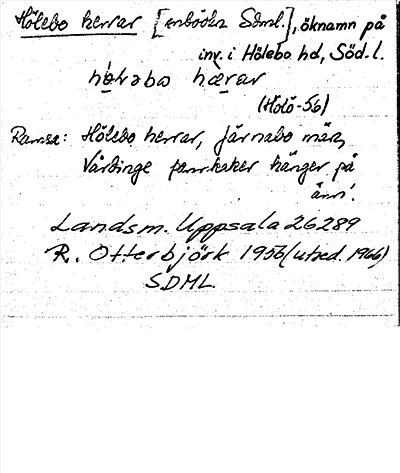 Hölebo herrar [inbördes Sdml.], öknamn på
inv. i Hölebo hd, Söd.l.
hörabo hærar
(Hölö-56)
Ramsa: Hölebo herrar, Järnabo mär,
Vårdinge pannkaker hänger på
änn'.
Landsm. Uppsala 26289
R. Otterbjörk 1956 (utsed. 1966)
SDML.